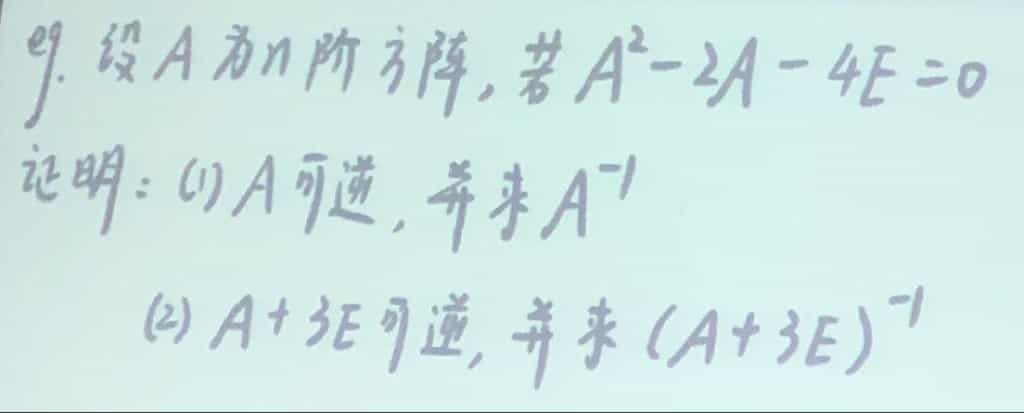 eg. 设 A 为 n 阶方阵, 若 A²-2A-4E=0
证明: (1) A 可逆, 并求 A⁻¹
(2) A+3E 可逆, 并求 (A+3E)⁻¹